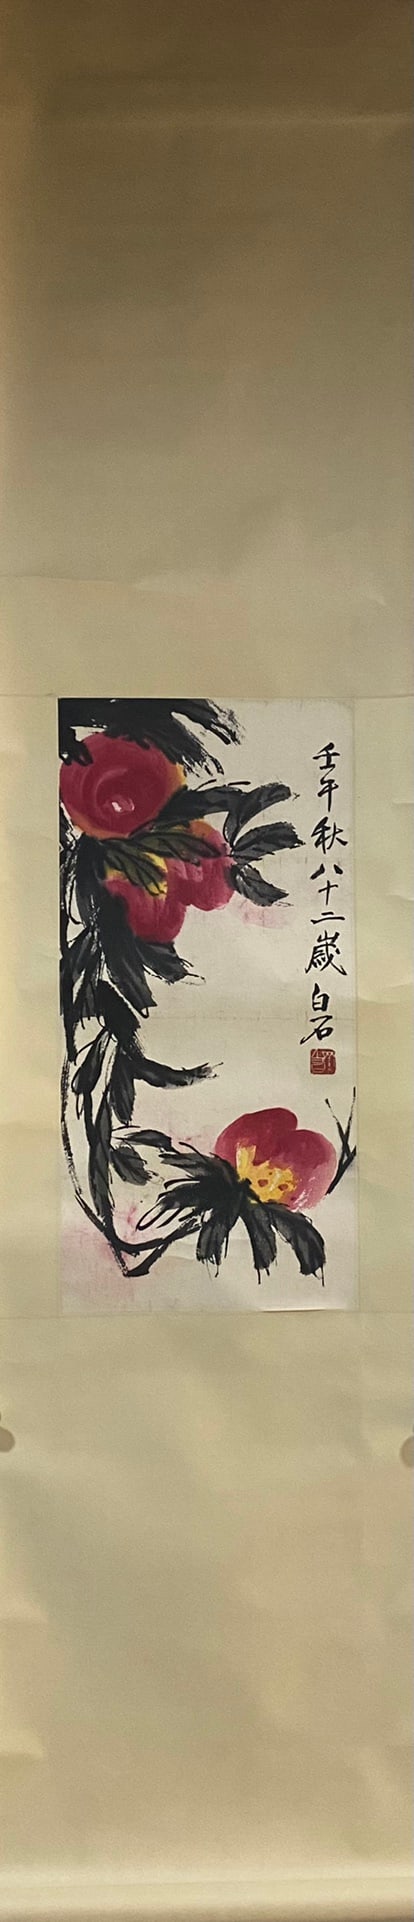 壬午秋八十二歲白石